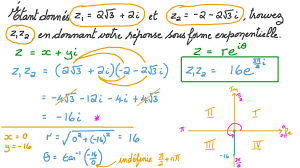 Étant donnés z₁ = 2√3 + 2i et z₂ = -2 - 2√3 i, trouvez
z₁z₂ en donnant votre réponse sous forme exponentielle.
z = x + yi
z = re^{iθ}
z₁z₂ = (2√3 + 2i)(-2 - 2√3 i)
z₁z₂ = 16e^{3π/2 i}
= -4√3 - 12i - 4i + 4√3
= -16i *
x = 0
y = -16
r = √(0² + (-16)²) = 16
θ = tan⁻¹(-16/0) indéfinie π/2 + nπ
Im
II
I
π
0
Re
III
IV
-16